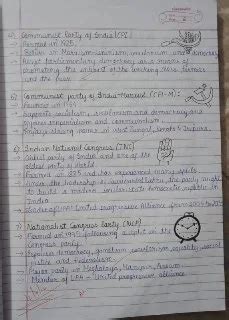 Communist Party of India (CPI)
Formed in 1925.
Believe in Marxism-Leninism, secularism and democracy
Accept parliamentary democracy as a means of
promoting the interest of the working class, farmers
and the poor
6) Communist party of India-Marxist (CPI-M):
Founded in 1964
Supports socialism, secularism and democracy and
opposes imperialism and communalism.
Enjoys strong in West Bengal, Kerala & Tripura.
Indian National Congress (INC)
Oldest party of India and one of the
oldest parties in world
Formed in 1885 and has experienced many splits
Under the leadership of Jawaharlal Nehru, the party sought
to build a modern secular democratic republic in
India
Leader of United Progressive Alliance from 2004 to 2019
7) Nationalist Congress Party (NCP)
Formed in 1999 following a split in the
Congress party.
Espouses democracy, gandhian secularism, equality, social
justice and Federalism.
Major party in Meghalaya, Manipur, Assam
Member of UPA - United progressive alliance